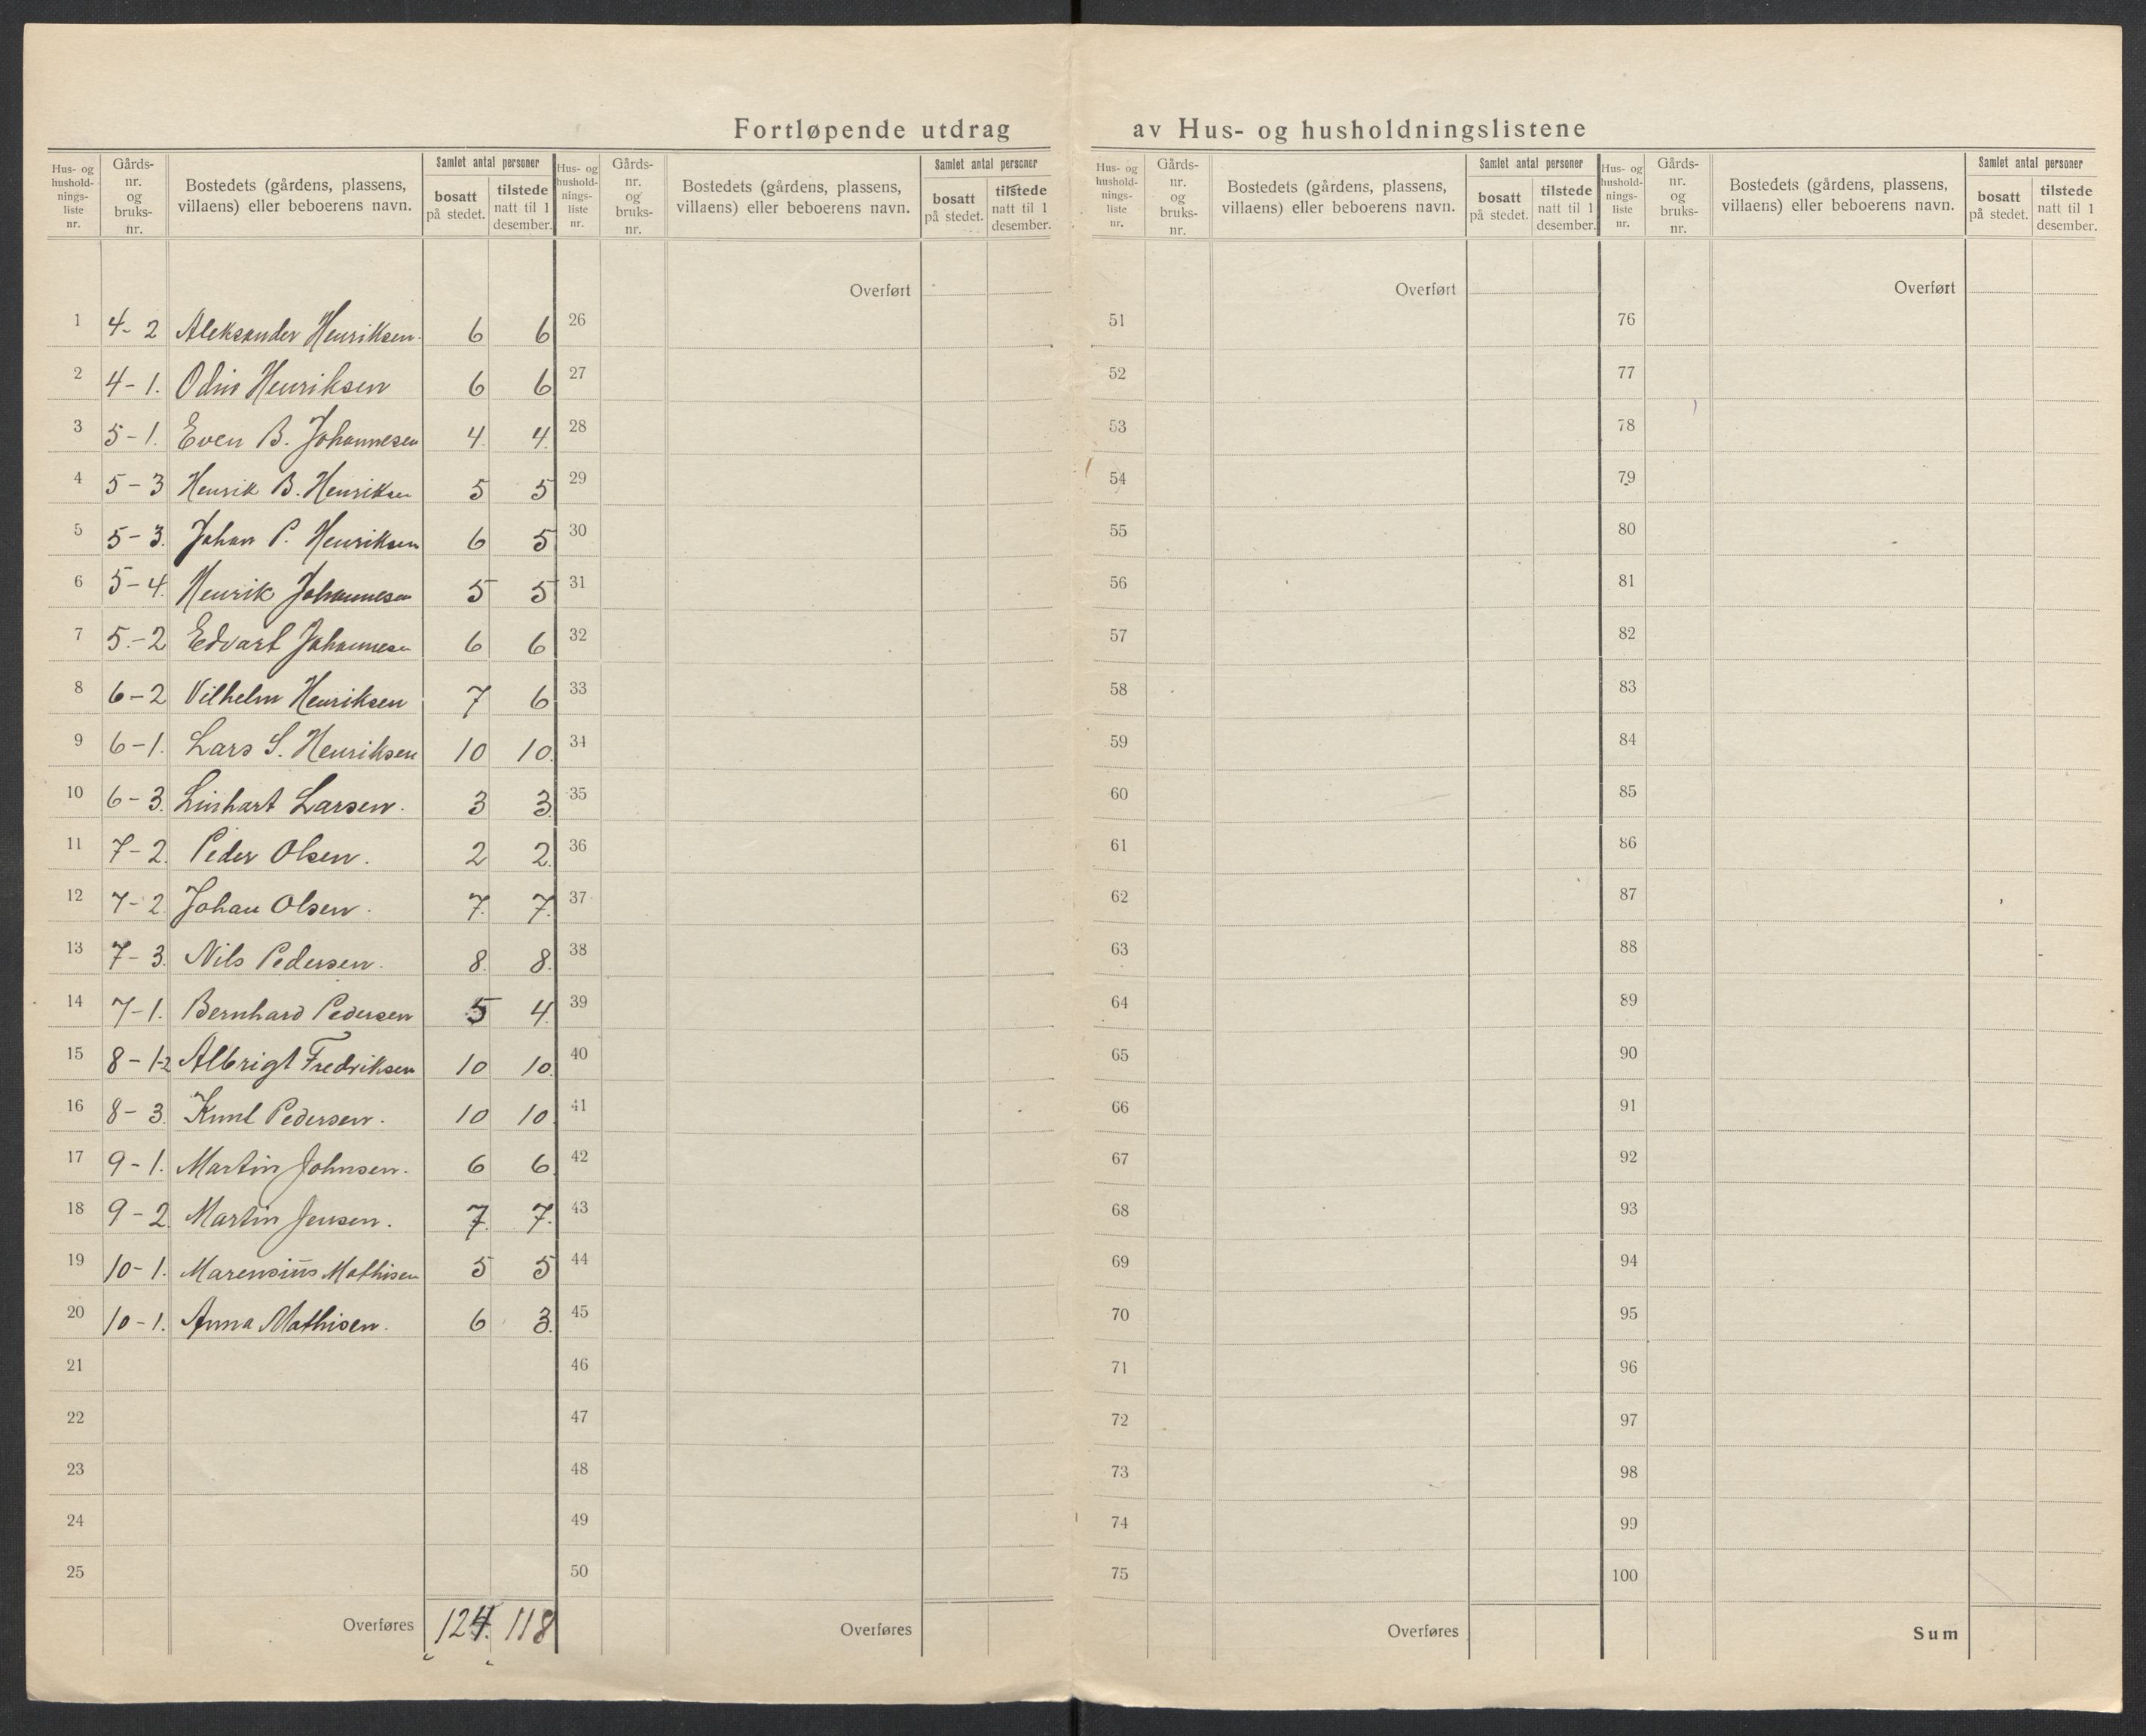 Fortløpende utdrag av Hus- og husholdningslistene
Hus- og hushold-nings-liste nr. | Gårds-nr. og bruks-nr. | Bostedets (gårdens, plassens, villaens) eller beboerens navn. | Samlet antal personer | bosatt på stedet. | tilstede natt til 1 desember.
Hus- og hushold-nings-liste nr. | Gårds-nr. og bruks-nr. | Bostedets (gårdens, plassens, villaens) eller beboerens navn. | Samlet antal personer | bosatt på stedet. | tilstede natt til 1 desember.
Hus- og hushold-nings-liste nr. | Gårds-nr. og bruks-nr. | Bostedets (gårdens, plassens, villaens) eller beboerens navn. | Samlet antal personer | bosatt på stedet. | tilstede natt til 1 desember.
Hus- og hushold-nings-liste nr. | Gårds-nr. og bruks-nr. | Bostedets (gårdens, plassens, villaens) eller beboerens navn. | Samlet antal personer | bosatt på stedet. | tilstede natt til 1 desember.
Overført Overført Overført
1 4-2 Aleksander Henriksen. 6 6 26 51 76
2 4-1. Odin Henriksen 6 6 27 52 77
3 5-1. Even B. Johannesen 4. 4. 28 53 78
4 5-3 Henrik B. Henriksen 5 5 29 54 79
5 5-3. Johan P. Henriksen 6 5 30 55 80
6 5-4. Henrik Johannesen 5 5 31 56 81
7 5.-2 Edvart Johannesen 6 6 32 57 82
8 6-2 Vilhelm Henriksen 7 6 33 58 83
9 6-1. Lars S. Henriksen 10 10. 34 59 84
10 6-3. Linhart Larsen. 3 3 35 60 85
11 7-2. Peder Olsen. 2 2. 36 61 86
12 7-2. Johan Olsen. 7. 7. 37 62 87
13 7-3. Nils Pedersen. 8. 8. 38 63 88
14 7-1. Bernhard Pedersen 5 4. 39 64 89
15 8-1-2 Albrigt Fredriksen 10 10. 40 65 90
16 8-3. Knut Pedersen. 10 10. 41 66 91
17 9-1. Martin Johnsen. 6 6. 42 67 92
18 9-2. Martin Jensen. 7. 7. 43 68 93
19 10-1. Marensius Mathisen 5 5 44 69 94
20 10-1. Anna Mathisen. 6 3. 45 70 95
21 46 71 96
22 47 72 97
23 48 73 98
24 49 74 99
25 50 75 100
Overføres 124. 118 Overføres Overføres Sum